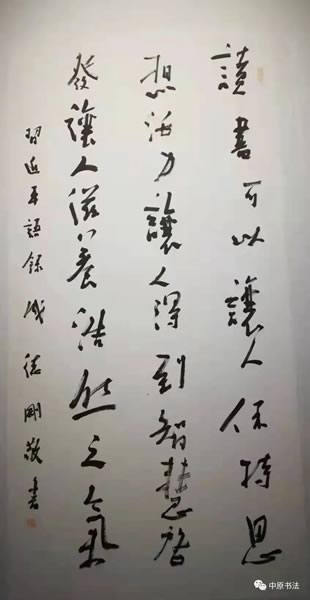 讀書可以讓人保持思
想活力讓人得到智慧啓
發讓人滋養浩然之氣
習近平語錄 德剛敬書
中原书法